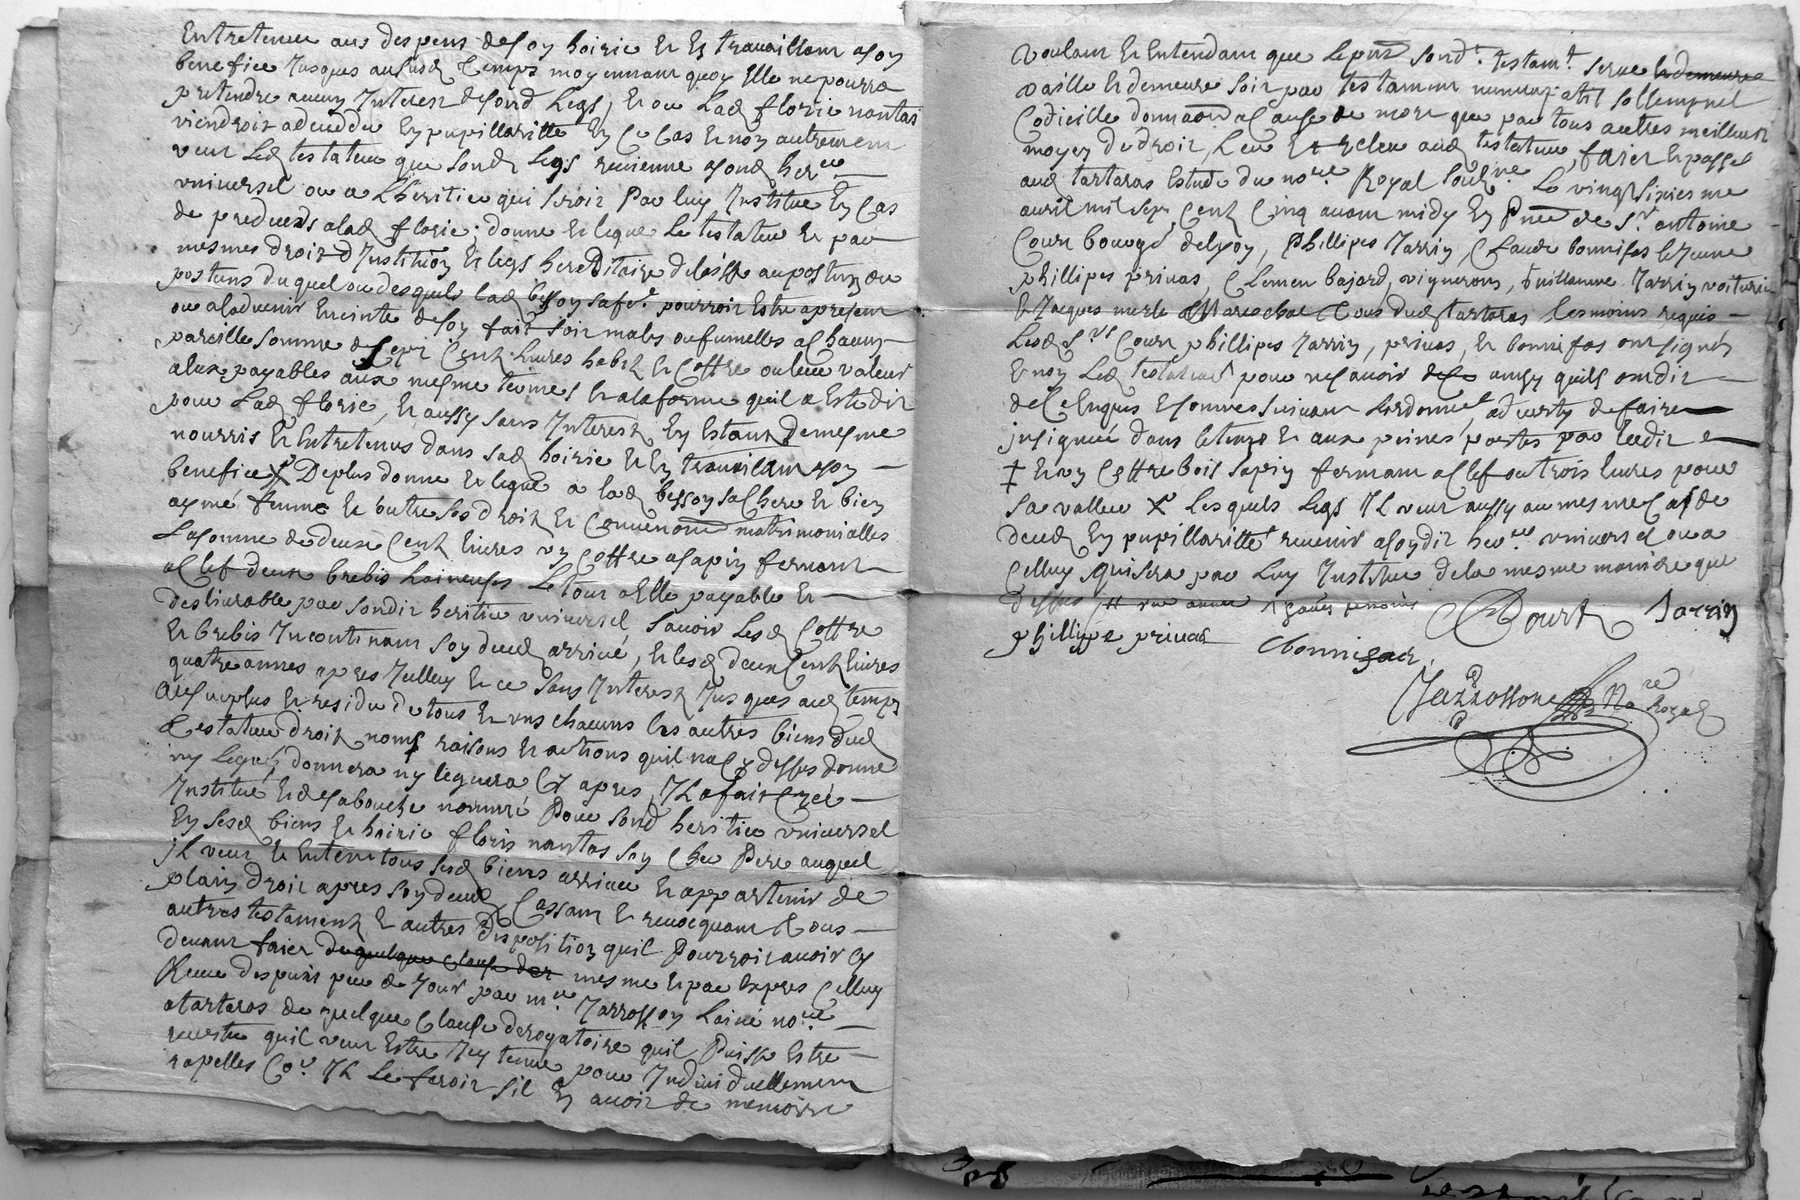 Entretenue aux despens de soy hoirie Et En travaillant a son
benefice Jusques aususd temps moyennant quoy Elle ne pourra
pretendre aucun Interest de sond Legs, Et ou Lad florie nantas
viendroit a deceddé En pupillaritte En Ce Cas Et non autrement
veut Led testateur que sond Legs revienne a sond her.re
vniversel ou a Lheritier qui seroit Par luy Institue En Cas
de predeces a lad florie, donne Et legue Le testateur Et par
mesmes droit d'Institution Et legs hereditaire delaisse au postume ou
postums duquel ou desquels lad besson sa fe. pourroit Estre a present
ou a ladvenir Enceinte de son fait soit masles ou fumelles a chacun
pareille somme de sept Cent Livres habit Et Coffre ou leur valeur
a eux payables aux mesme termes Et a la forme quil a Esté dit
pour Lad florie, Et aussy sans Interest En Estant de mesme
nourris Et Entretenus dans sad hoirie Et En travaillant a son
benefice X De plus donne Et legue a lad besson sa chere Et bien
aymé femme Et outre ses droit Et Convenons matrimonialles
La somme de deux Cent livres vn Coffre a sapin fermant
a Clef deux brebis haineuses Le tout a Elle payable Et
deslivrable par sondit heritier vniversel savoir Lesd Coffre
Et brebis Incontinant son deced arrivé, Et lesd deux Cent livres
quatre annes apres Icelluy Et ce sans Interest Jusques aud temps
Au surplus Et residu de tous Et vns chacuns les autres biens dud
testateur droit noms raisons Et actions quil na Cy dessus donné
ny Legué, donnera ny leguera Cy apres, Il a fait Créé
Institué Et de sa bouche nommé Pour sond heritier vniversel
En sesd biens Et hoirie floris nantas son cher Pere auquel
Il veut Et Entent tous sesd biens arriver Et appartenir de
plain droit apres son deced, Cassant Et revocquant tous
autres testament Et autres Disposition quil Pourroit avoir Cy
devant faict de quelque clause der mesme Et par Expres Celluy
Receu despuis peu de Jour par m.e Jarrosson Lainé no.re
a tartaras de quelque Clause derogatoire quil Puisse Estre
revestu quil veut Estre Icy tenue pour Individuellement
rapelles Co.e Il Le feroit sil En avoit de memoire
Voulant Et Entendant que Le pnt sond. testam.t serve Et demeure
vaille Et demeure soit par testament nuncupatif sollempnel
Codicille donnaon a Cause de mort que par tous autres meilleur
moyen de droit, Leu Et releu aud testateur, faict Et passé
aud tartaras Estude du no.re Royal soub.ne Le vingt sixiesme
avril mil sept Cent Cinq avant midy En Pnce de S.r antoine
Court bourgo. de lyon, Phillipes Jarrin, Claude bonnifas le Jeune
phillipes privas, Clement bajard, vignerons, Guillaume Jarrin voiturier
Et Jacques merle Mareschal tous dud tartaras tesmoins requis
Lesd s.rs Court phillipes Jarrin, privas, Et bonnifas ont signés
Et non Led testateur pour ne scavoir de ce ainsy quils ont dit
de Ce Enquis Et sommes suivant Lordonnce, adverty de faire
insignuer dans le temps Et aux peines portés par Ledit
‡ Et vn Coffre bois sapin fermant a Clef ou trois livres pour
sa valleur X Lesquels Legs Il veut aussy au mesme Cas de
deced En pupillaritte revenir a sondit her.re vniversel ou a
Celluy qui sera par Luy Institue de la mesme maniere que
dessus
phillipe privas Bonnifas Court Jarrin
Jarrosson No.re Royal